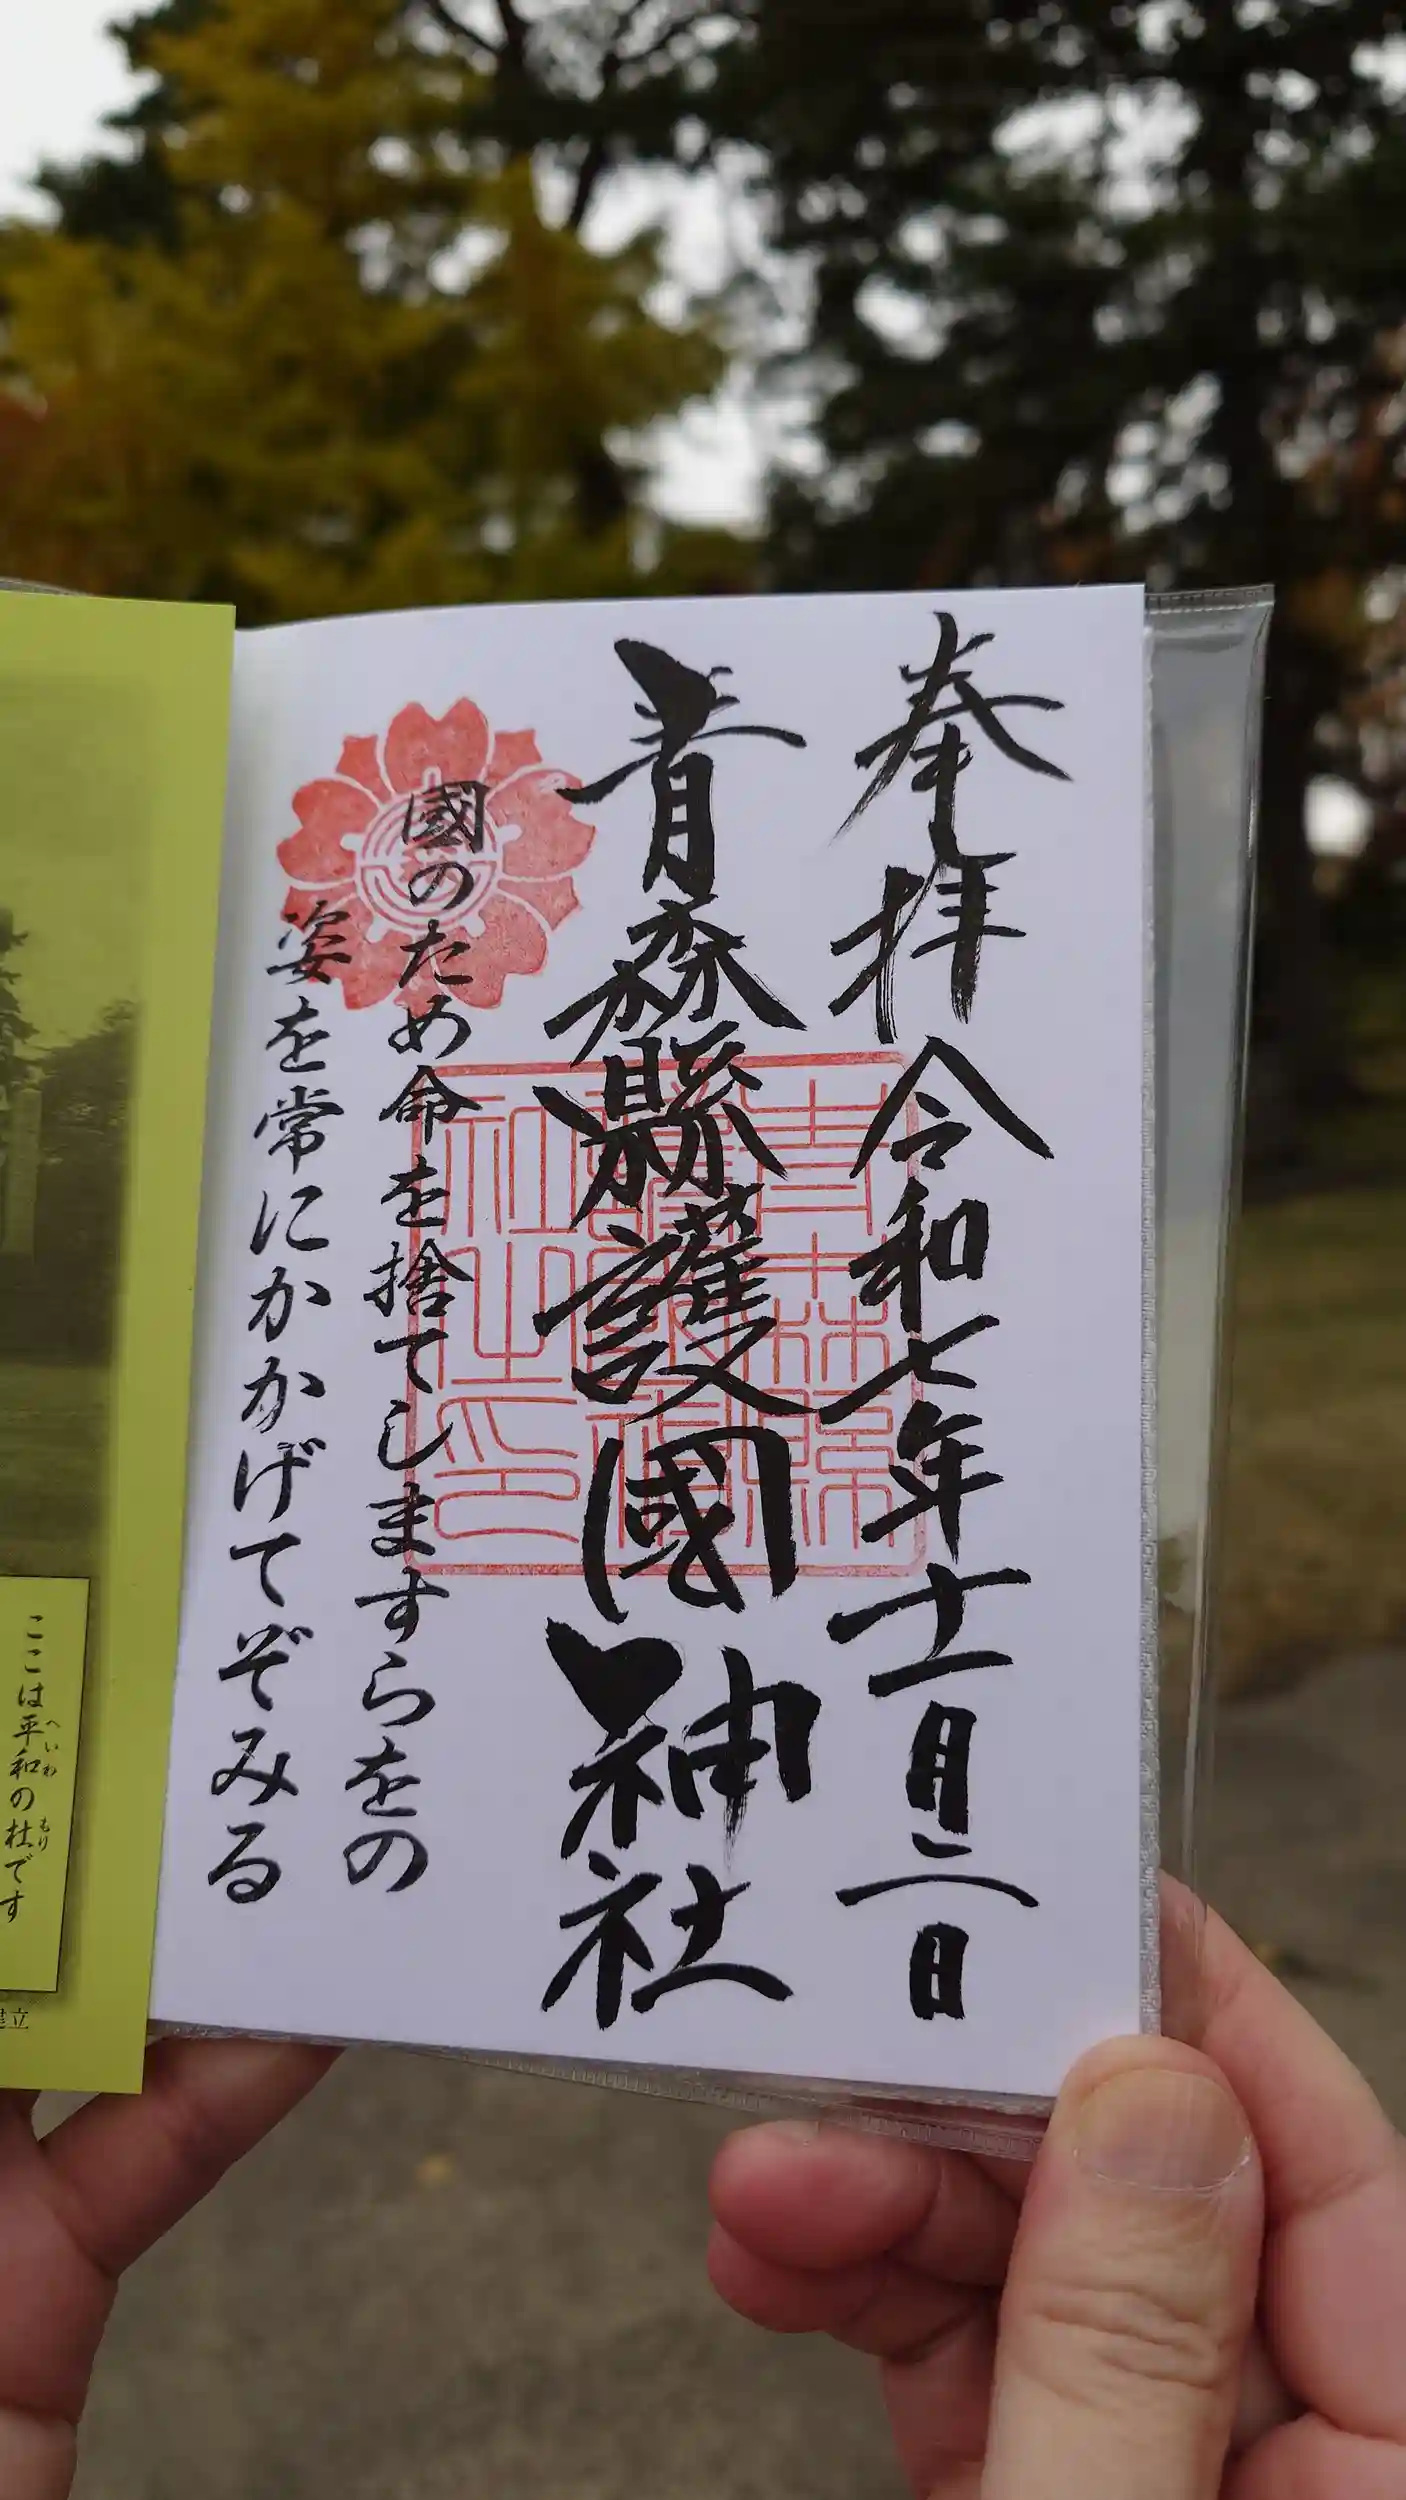 奉拝 令和七年十一月二日
青森縣護國神社
國のため命を捨てしますらをの
姿を常にかかげてぞみる
青森縣護國神社之印
ここは平和の杜です
へいわ
もり
建立